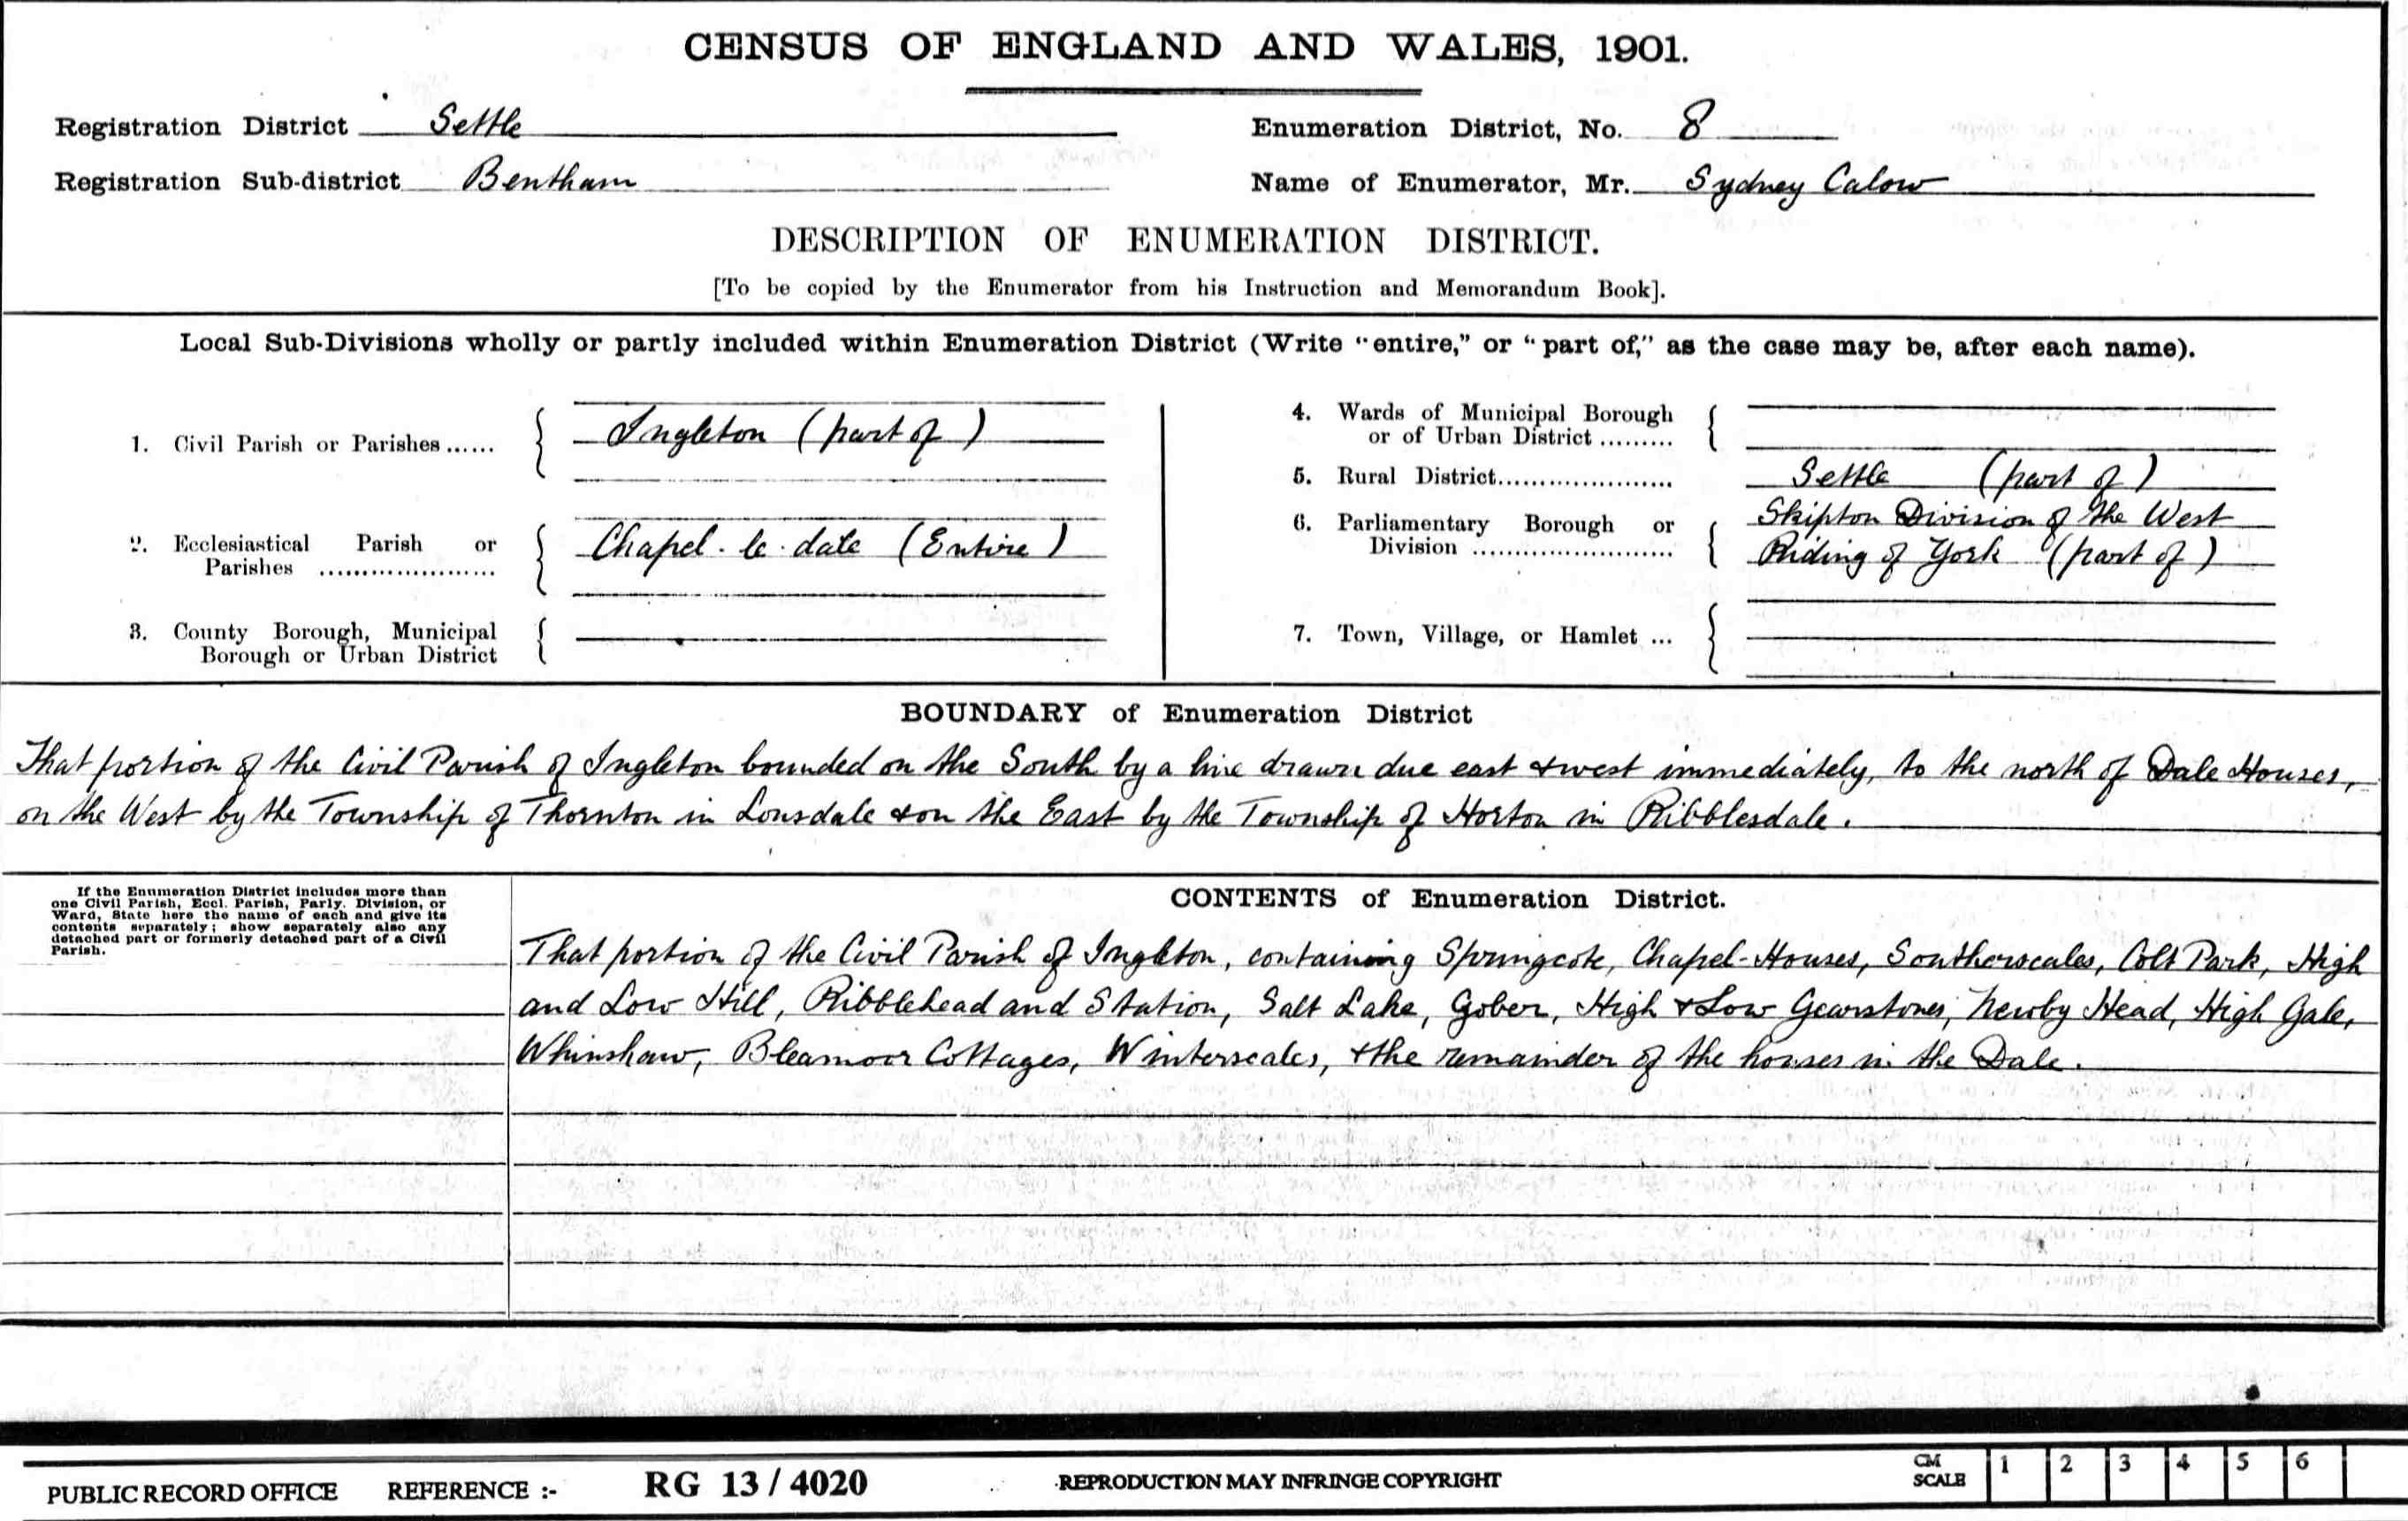 CENSUS OF ENGLAND AND WALES, 1901.
Registration District Settle
Enumeration District, No. 8
Registration Sub-district Bentham
Name of Enumerator, Mr. Sydney Calow
DESCRIPTION OF ENUMERATION DISTRICT.
[To be copied by the Enumerator from his Instruction and Memorandum Book].
Local Sub-Divisions wholly or partly included within Enumeration District (Write "entire," or "part of," as the case may be, after each name).
1. Civil Parish or Parishes ...... Ingleton (part of)
2. Ecclesiastical Parish or
Parishes ..................... Chapel-le-dale (Entire)
3. County Borough, Municipal
Borough or Urban District
4. Wards of Municipal Borough
or of Urban District .........
5. Rural District..................... Settle (part of)
6. Parliamentary Borough or Skipton Division of the West
Division ........................ Riding of York (part of)
7. Town, Village, or Hamlet ...
BOUNDARY of Enumeration District
That portion of the Civil Parish of Ingleton bounded on the South by a line drawn due east & west immediately, to the north of Dale Houses,
on the West by the Township of Thornton in Lonsdale & on the East by the Township of Horton in Ribblesdale.
If the Enumeration District includes more than
one Civil Parish, Eccl. Parish, Parly. Division, or
Ward, State here the name of each and give its
contents separately; show separately also any
detached part or formerly detached part of a Civil
Parish.
CONTENTS of Enumeration District.
That portion of the Civil Parish of Ingleton, containing Springcote, Chapel-Houses, Southerscales, Colt Park, High
and Low Hill, Ribblehead and Station, Salt Lake, Gober, High & Low Gearstones, Newby Head, High Gale,
Whinshaw, Bleamoor Cottages, Winterscales, & the remainder of the houses in the Dale.
PUBLIC RECORD OFFICE REFERENCE :- RG 13 / 4020 REPRODUCTION MAY INFRINGE COPYRIGHT
CM
SCALE 1 2 3 4 5 6